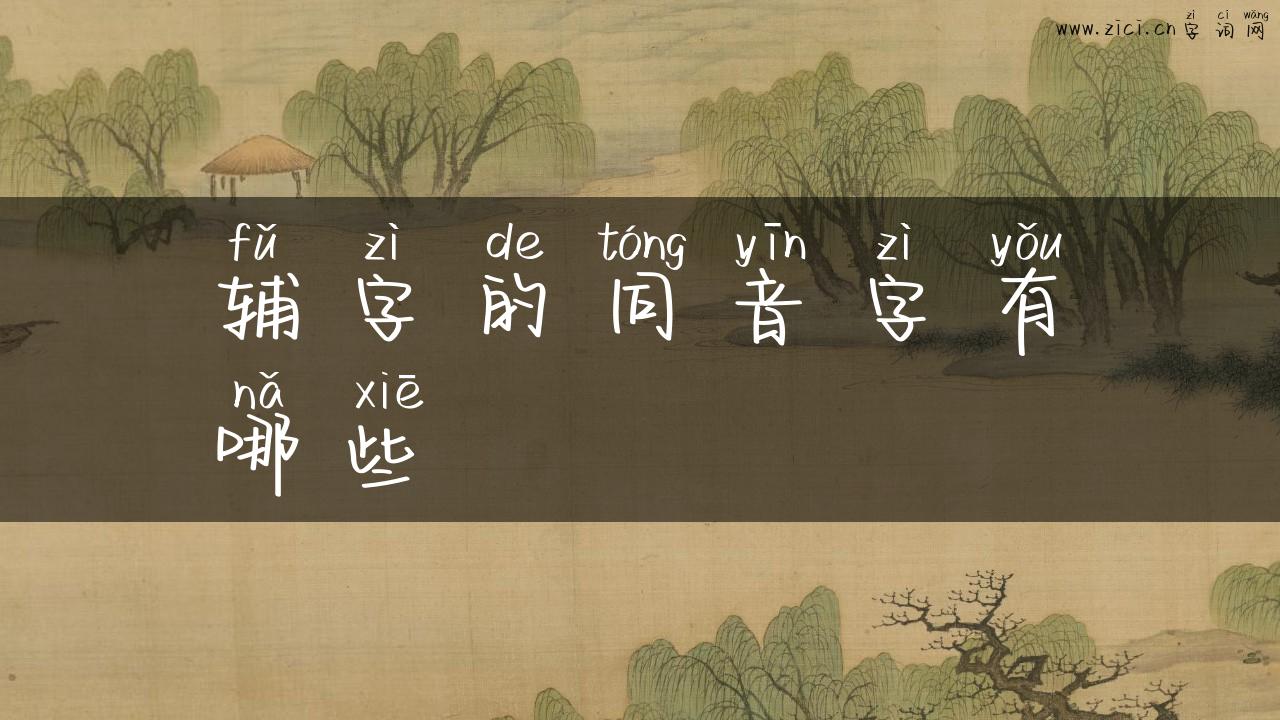 zì cí wǎng
www.zici.cn字词网
fǔ zì de tóng yīn zì yǒu
辅字的同音字有
nǎ xiē
哪些